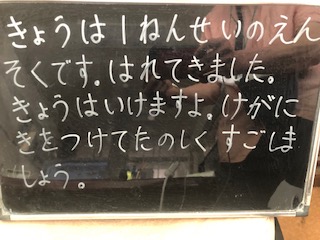 きょうは1ねんせいのえん
そくです。はれてきました。
きょうはいけますよ。けがに
きをつけてたのしくすごしま
しょう。